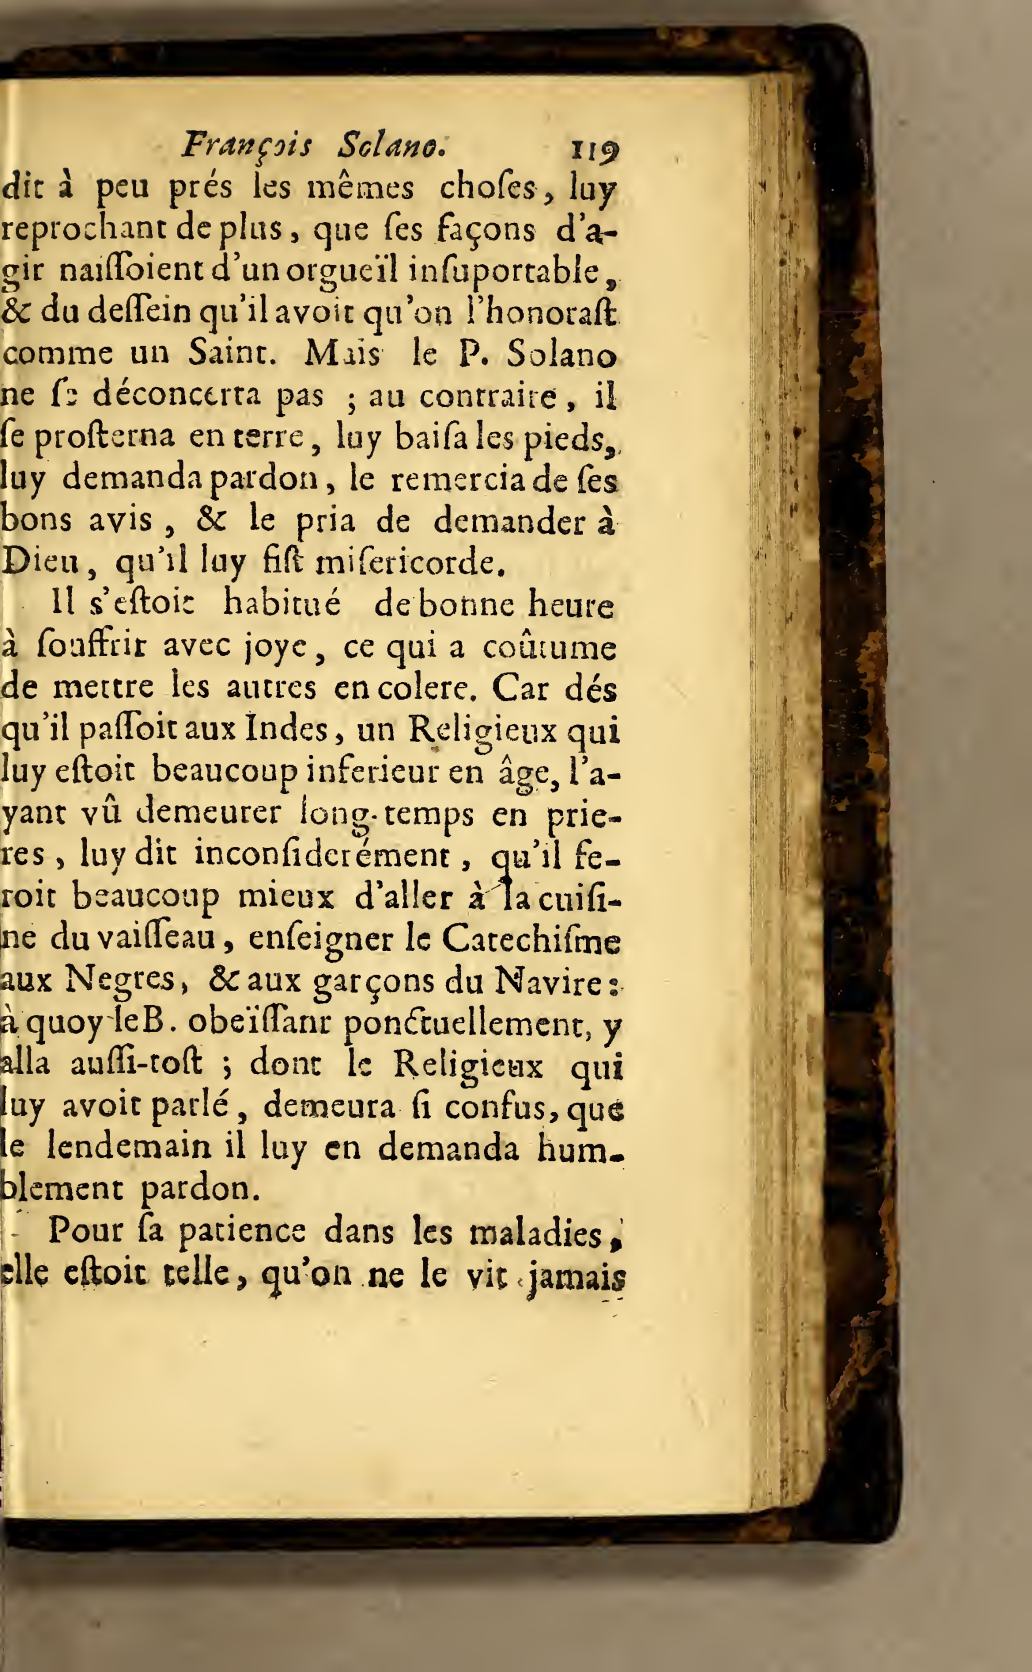 François Solano. 119
dit à peu prés les mêmes choſes, luy
reprochant de plus, que ſes façons d'a-
gir naiſſoient d'un orgueïl inſuportable,
& du deſſein qu'il avoit qu'on l'honoraſt
comme un Saint. Mais le P. Solano
ne ſe déconcerta pas ; au contraire, il
ſe proſterna en terre, luy baiſa les pieds,
luy demanda pardon, le remercia de ſes
bons avis, & le pria de demander à
Dieu, qu'il luy fiſt miſericorde.
Il s'eſtoit habitué de bonne heure
à ſouffrir avec joye, ce qui a coûtume
de mettre les autres en colere. Car dés
qu'il paſſoit aux Indes, un Religieux qui
luy eſtoit beaucoup inferieur en âge, l'a-
yant vû demeurer long-temps en prie-
res, luy dit inconſiderément, qu'il fe-
roit beaucoup mieux d'aller à la cuiſi-
ne du vaiſſeau, enſeigner le Catechiſme
aux Negres, & aux garçons du Navire :
à quoy le B. obeïſſant ponctuellement, y
alla auſſi-toſt ; dont le Religieux qui
luy avoit parlé, demeura ſi confus, que
le lendemain il luy en demanda hum-
blement pardon.
Pour ſa patience dans les maladies,
elle eſtoit telle, qu'on ne le vit jamais